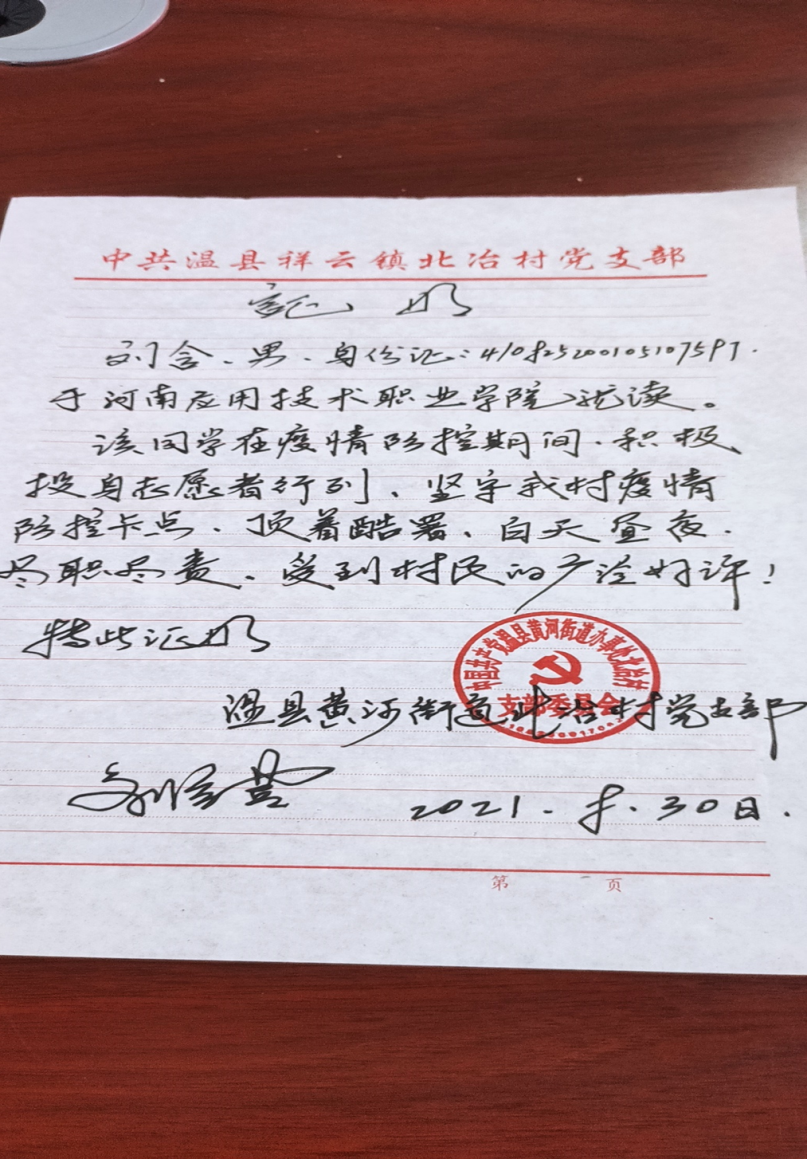 中共温县祥云镇北冶村党支部
证 明
刘含、男、身份证:410825200105107597.
于河南应用技术职业学院就读。
该同学在疫情防控期间、积极、
投身志愿者行列、坚守我村疫情
防控卡点、顶着酷署、白天昼夜.
尽职尽责、受到村民的广泛好评!
特此证明
中国共产党温县黄河街道办事处北冶村
支部委员会
温县黄河街道北冶村党支部
2021.8.30日.
第 页